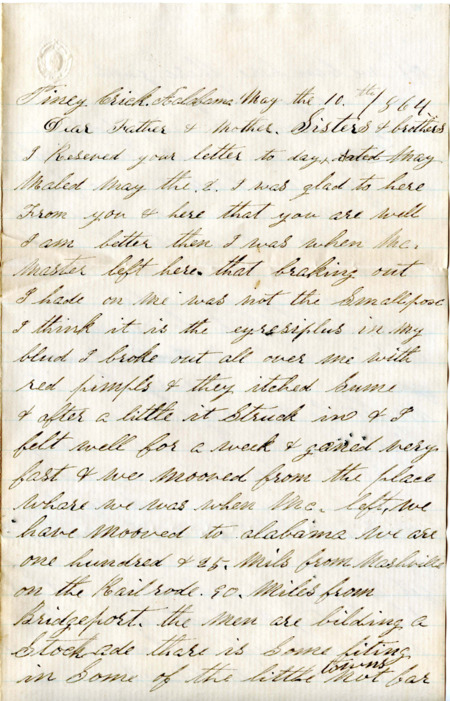 Piney Crick. Alabama May the 10.th/1864
Dear Father & Mother. Sisters & brothers
I Reseved your letter to day, dated May
Maled May the .2. I was glad to here
From you & here that you are well
I am better then I was when Mc.
Master left here. that braking out
I hade on me was not the Smallpose
I think it is the in my
blud I broke out all over me with
red pimpls & they itched Sume
& after a little it Struck in & I
felt well for a week & gained very
fast & we mooved from the place
whare we was when Mc. left, we
have mooved to alabama we are
one hundred & 25. Mils from Nashville
on the Railrode. 90. Miles from
Bridgeport. the men are bilding a
Stockade thare is Some fiting
in Some of the little towns not far